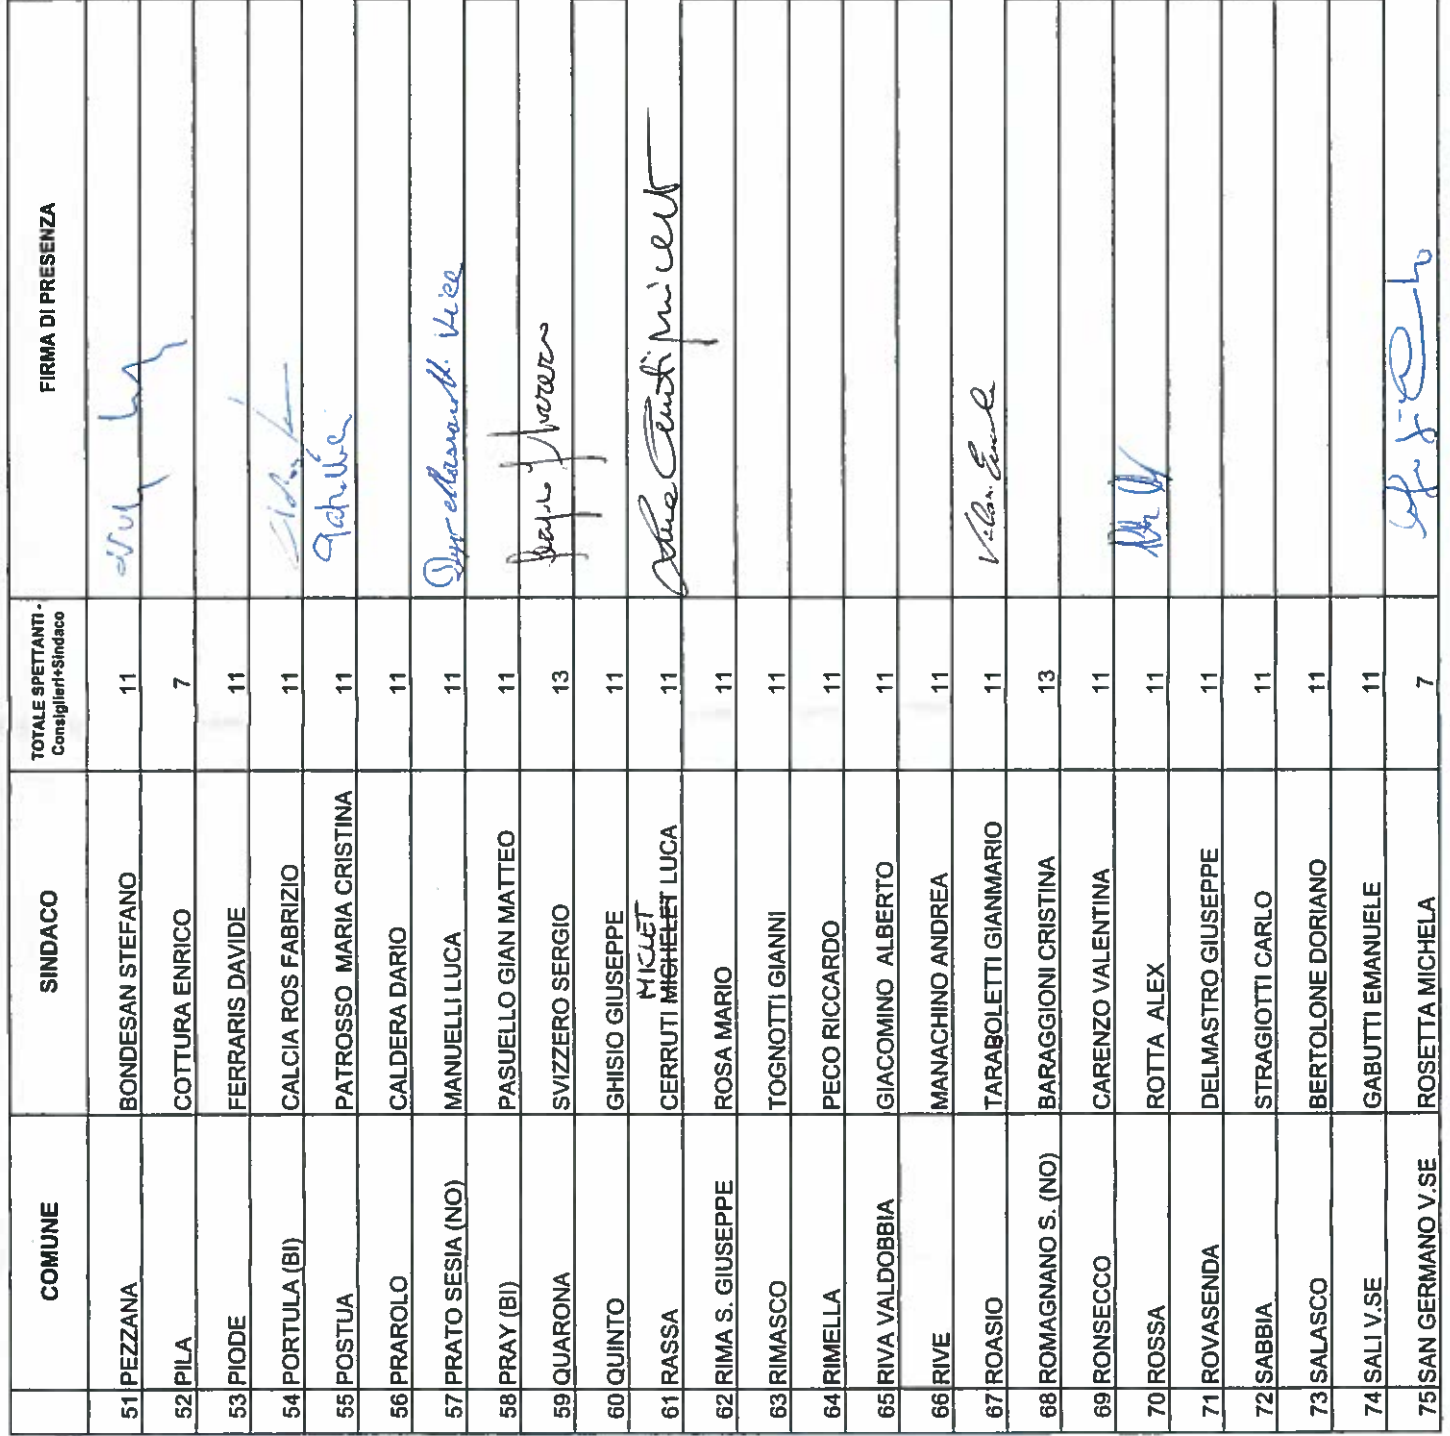 COMUNE SINDACO TOTALE SPETTANTI - Consiglieri+Sindaco FIRMA DI PRESENZA
51 PEZZANA BONDESAN STEFANO 11
52 PILA COTTURA ENRICO 7
53 PIODE FERRARIS DAVIDE 11
54 PORTULA (BI) CALCIA ROS FABRIZIO 11
55 POSTUA PATROSSO MARIA CRISTINA 11
56 PRAROLO CALDERA DARIO 11
57 PRATO SESIA (NO) MANUELLI LUCA 11
58 PRAY (BI) PASUELLO GIAN MATTEO 11
59 QUARONA SVIZZERO SERGIO 13
60 QUINTO GHISIO GIUSEPPE 11
MICLET
61 RASSA CERRUTI MICHELET LUCA 11
62 RIMA S. GIUSEPPE ROSA MARIO 11
63 RIMASCO TOGNOTTI GIANNI 11
64 RIMELLA PECO RICCARDO 11
65 RIVA VALDOBBIA GIACOMINO ALBERTO 11
66 RIVE MANACHINO ANDREA 11
67 ROASIO TARABOLETTI GIANMARIO 11
68 ROMAGNANO S. (NO) BARAGGIONI CRISTINA 13
69 RONSECCO CARENZO VALENTINA 11
70 ROSSA ROTTA ALEX 11
71 ROVASENDA DELMASTRO GIUSEPPE 11
72 SABBIA STRAGIOTTI CARLO 11
73 SALASCO BERTOLONE DORIANO 11
74 SALI V.SE GABUTTI EMANUELE 11
75 SAN GERMANO V.SE ROSETTA MICHELA 7